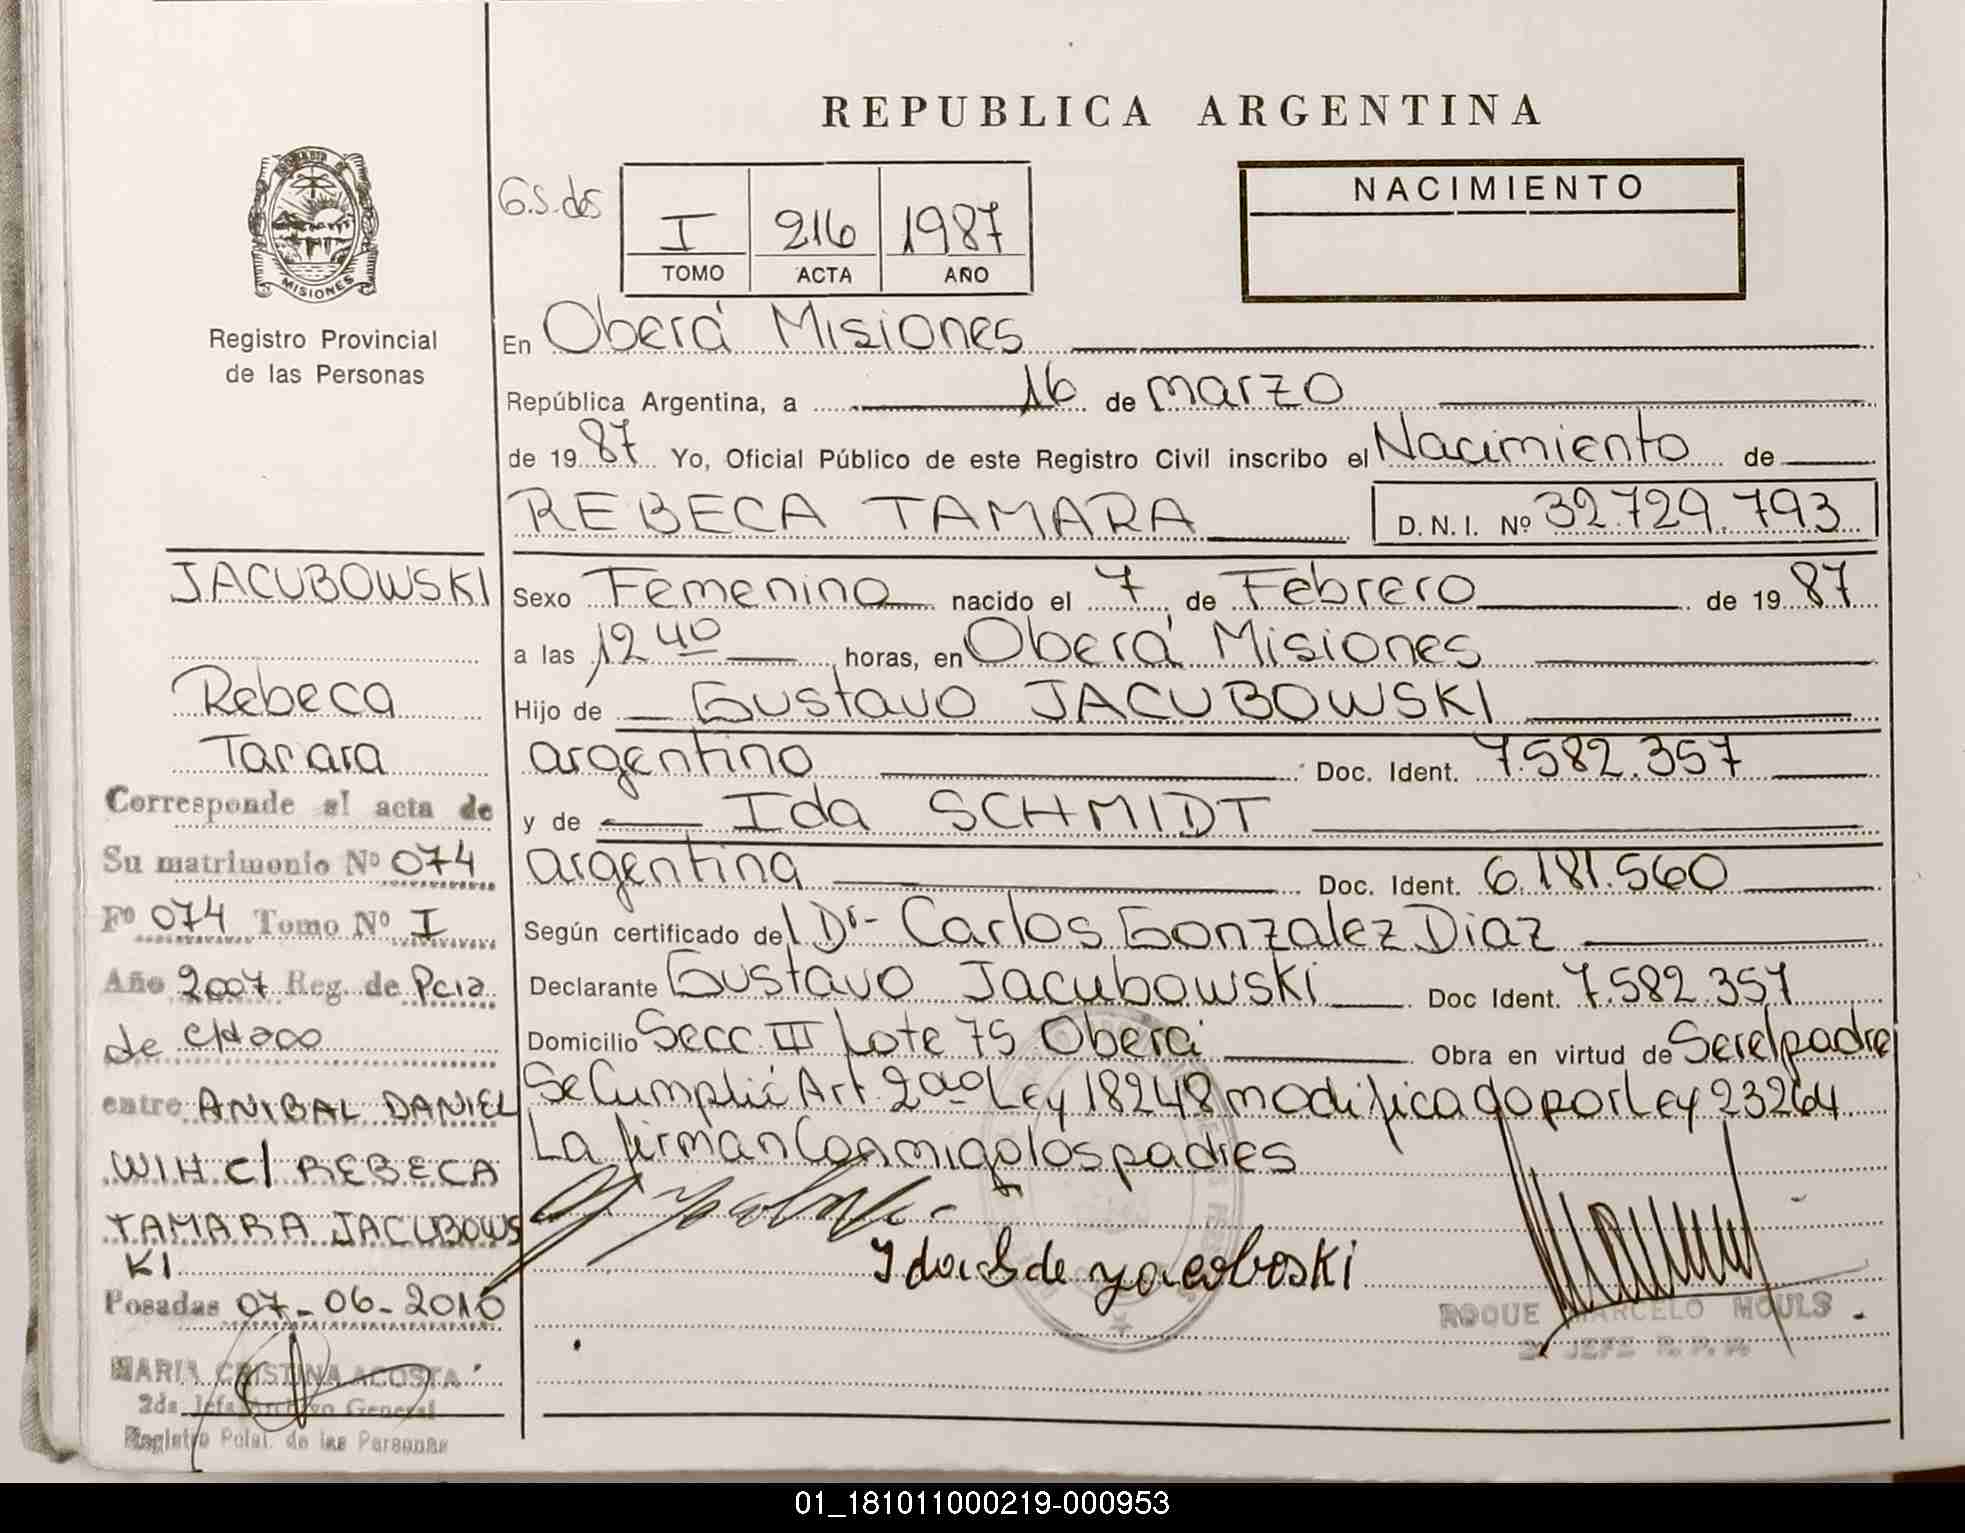 REPUBLICA ARGENTINA
MISIONES
Registro Provincial
de las Personas
G.S. dos
I 216 1987
TOMO ACTA AÑO
NACIMIENTO
En Oberá Misiones
República Argentina, a 16 de marzo
de 1987 Yo, Oficial Público de este Registro Civil inscribo el Nacimiento de
REBECA TAMARA D.N.I. Nº 32.729.793
Sexo Femenino nacido el 7 de Febrero de 1987
a las 12 40 horas, en Oberá Misiones
Hijo de Gustavo JACUBOWSKI
argentino Doc. Ident. 7.582.357
y de Ida SCHMIDT
argentina Doc. Ident. 6.181.560
Según certificado del Dr. Carlos Gonzalez Diaz
Declarante Gustavo Jacubowski Doc Ident. 7.582.357
Domicilio Secc III Lote 75 Oberá Obra en virtud de Ser el padre
Se Cumplió Art 2do Ley 18248 modificado por Ley 23264
La firman Conmigo los padres
Ida S de Yacoboski
ROQUE MARCELO MOULS
2º JEFE R. P. P.
JACUBOWSKI
Rebeca
Tamara
Corresponde al acta de
Su matrimonio Nº 074
Fº 074 Tomo Nº I
Año 2007 Reg. de Pcia
de CHaco
entre ANIBAL DANIEL
WIH c/ REBECA
TAMARA JACUBOWS
KI
Posadas 07-06-2010
MARIA CRISTINA ACOSTA
2da. Jefa Archivo General
Registro Pcial. de las Personas
01_181011000219-000953